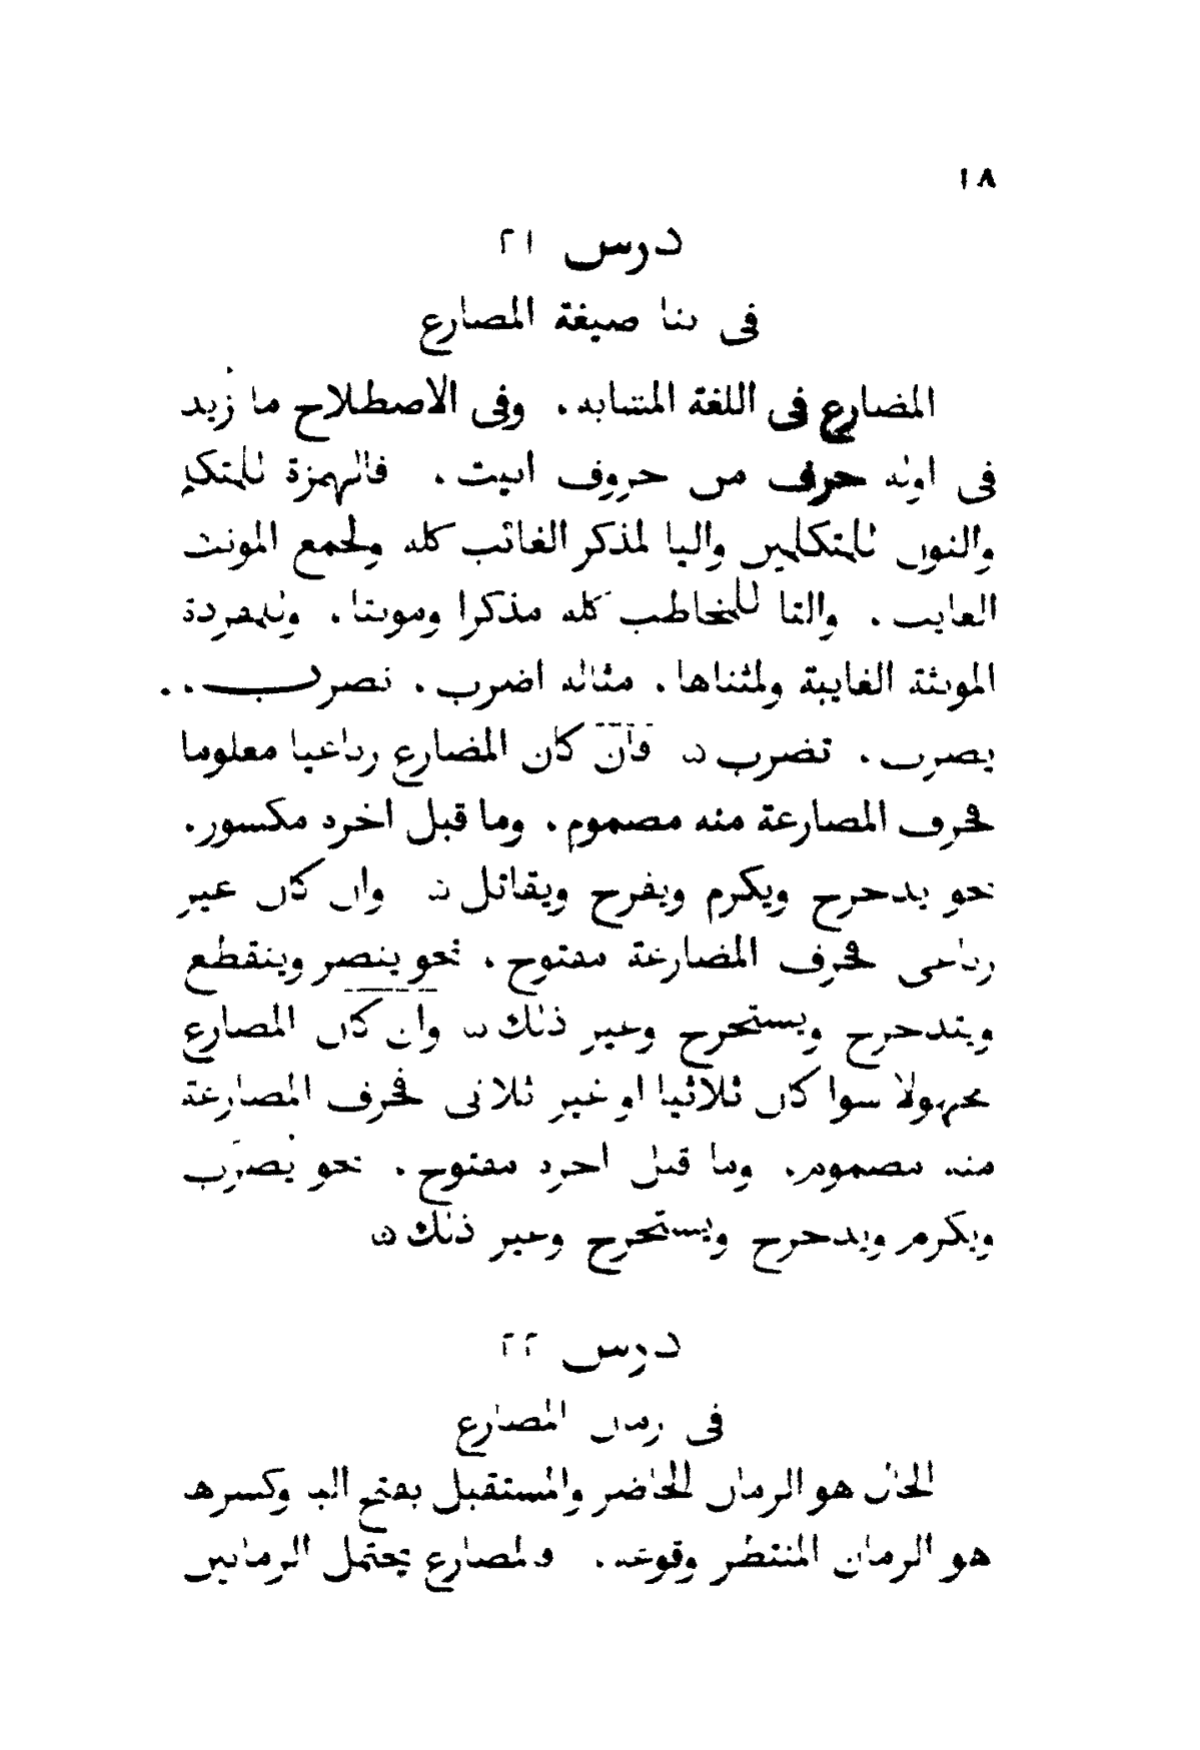 ١٨
درس ٢١
فى بنا صيغة المضارع
المضارع فى اللغة المتشابه. وفى الاصطلاح ما زيد
فى اوله حرف من حروف اتيت. فالهمزة للمتكلم
والنون للمتكلمين واليا لمذكر الغائب كله ولجمع المونث
الغايب. والتا للمخاطب كله مذكرا ومونثا. وللمفردة
المونثة الغايبة ولمثناها. مثاله اضرب. نضرب.
يضرب. تضرب ۞ فان كان المضارع رباعيا معلوما
فحرف المضارعة منه مضموم. وما قبل اخره مكسور.
نحو يدحرج ويكرم ويفرح ويقاتل ۞ وان كان غير
رباعى فحرف المضارعة مفتوح. نحو ينصر وينقطع
ويتدحرج ويستخرج وغير ذلك ۞ وان كان المضارع
مجهولا سوا كان ثلاثيا او غير ثلاثى فحرف المضارعة
منه مضموم. وما قبل اخره مفتوح. نحو يُضرَب
ويكرم ويدحرج ويستخرج وغير ذلك ۞
درس ٢٢
فى زمان المضارع
الحال هو الزمان الحاضر والمستقبل بفتح البا وكسرها
هو الزمان المنتظر وقوعه. فالمضارع يحتمل الزمانين